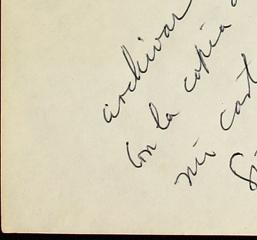 archivar
con la copia
mi cart
Si